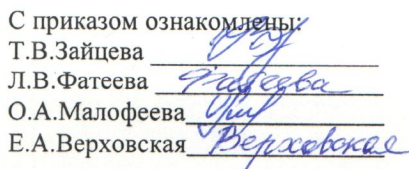 С приказом ознакомлены:
Т.В.Зайцева
Л.В.Фатеева Фатеева
О.А.Малофеева
Е.А.Верховская Верховская